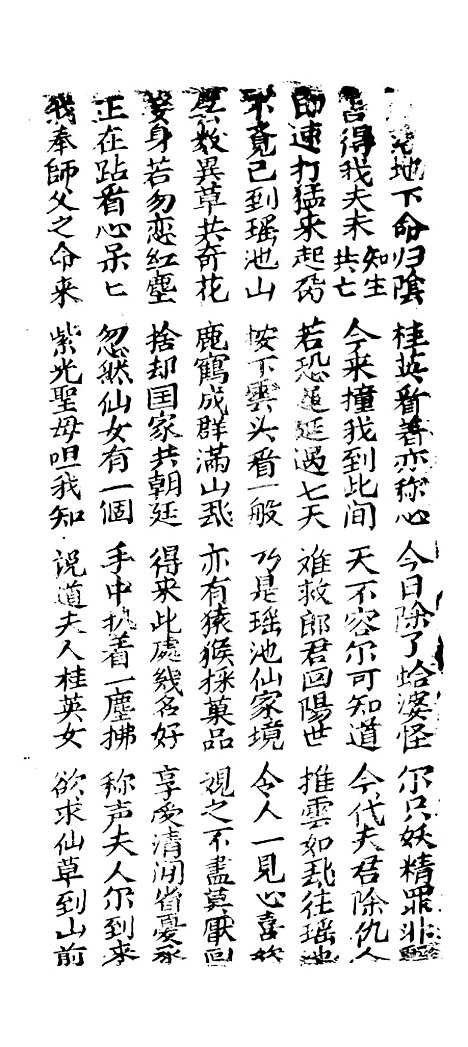 地下命归陰 桂英看着亦称心 今日除了蛤婆怪 尔只妖精罪非
害得我夫未知生共亡 今来撞我到此间 天不容尔可知道 今代夫君除仇人
即速打猛来起磅 若恐遥延過七天 难救郎君回陽世 推雲如飛往瑶池
不覔已到瑶池山 按下雲头看一般 乃是瑶池仙家境 令人一見心喜
数異草共奇花 鹿鶴成群滿山飛 亦有猿猴採菓品 視之不盡莫厭回
妾身若勿恋紅塵 捨却国家共朝廷 得来此處幾名好 享受清闲省憂
正在跕看心呆匕 忽然仙女有一個 手中执着一塵拂 称声夫人尔到来
我奉師父之命来 紫光聖母呾我知 说道夫人桂英女 欲求仙草到山前